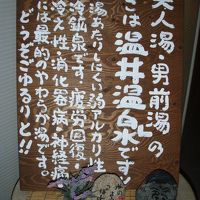 美人湯、男前湯の
さは温井温泉です!
湯あたりしない弱アルカリ性
冷鉱泉です。疲労回復、
冷え性、消化器病、神経痛
には最適のやわらか湯です。
どうぞごゆるりと!!